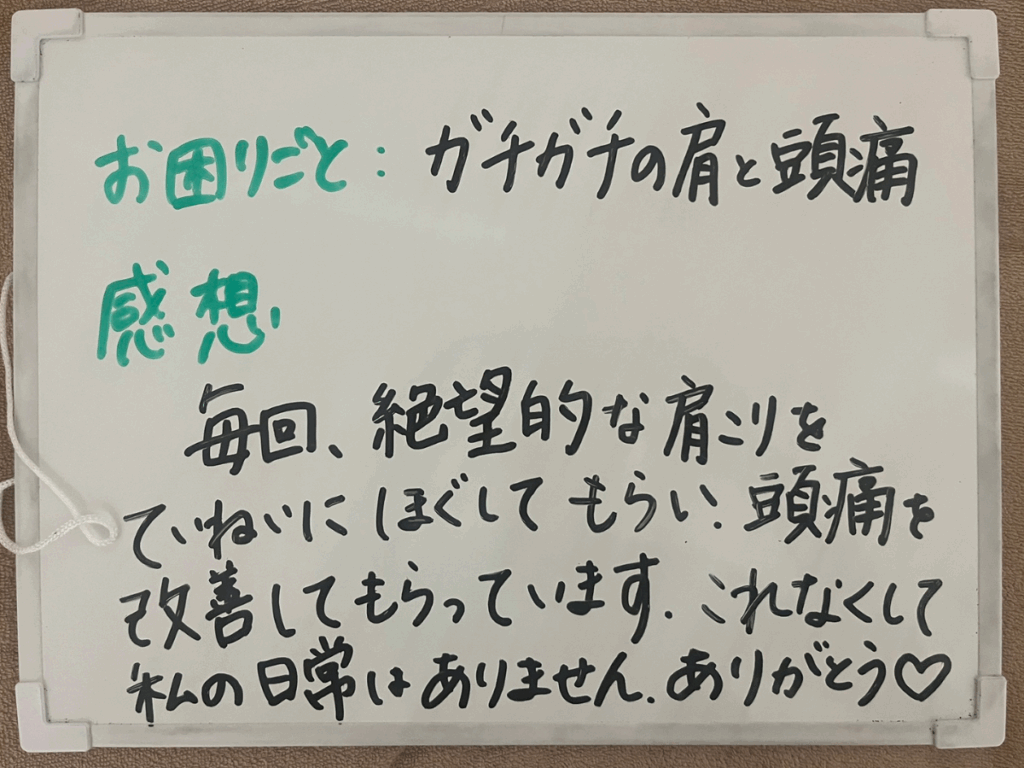 お困りごと：ガチガチの肩と頭痛
感想
毎回、絶望的な肩こりを
ていねいにほぐしてもらい、頭痛を
改善してもらっています。これなくして
私の日常はありません。ありがとう♡